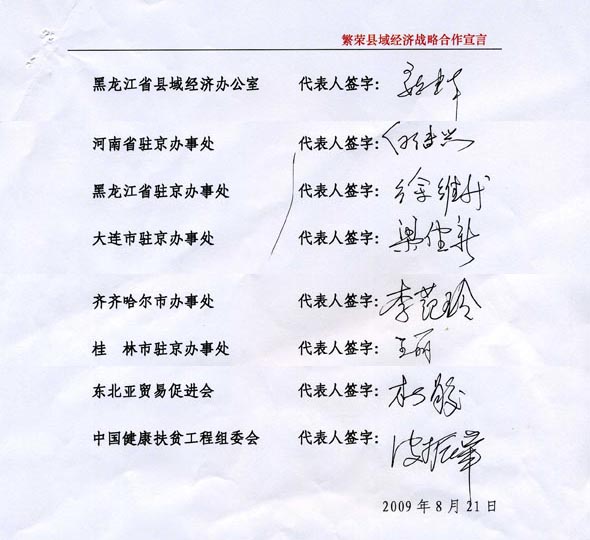 繁荣县域经济战略合作宣言
黑龙江省县域经济办公室 代表人签字：
河南省驻京办事处 代表人签字：
黑龙江省驻京办事处 代表人签字：徐维
大连市驻京办事处 代表人签字：
齐齐哈尔市办事处 代表人签字：李范玲
桂 林市驻京办事处 代表人签字：王丽
东北亚贸易促进会 代表人签字：
中国健康扶贫工程组委会 代表人签字：
2009年8月21日